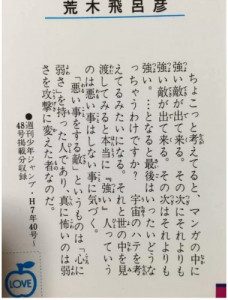 荒木飛呂彦
ちょこっと考えてると、マンガの中に
強い敵が出て来る。その次にそれよりも
強い敵が出て来る。その次はそれよりも
強い。…となると最後はいったいどうな
っちゃうわけですか? 宇宙のハテを考
えてるみたいになる。それと世の中を見
渡してみると本当に『強い』人っていう
のは悪い事はしない事に気づく。
『悪い事をする敵』というものは「心に
弱さ」を持った人であり、真に怖いのは弱
さを攻撃に変えた者なのだ。
●週刊少年ジャンプ・H7年40号〜
48号掲載分収録
LOVE